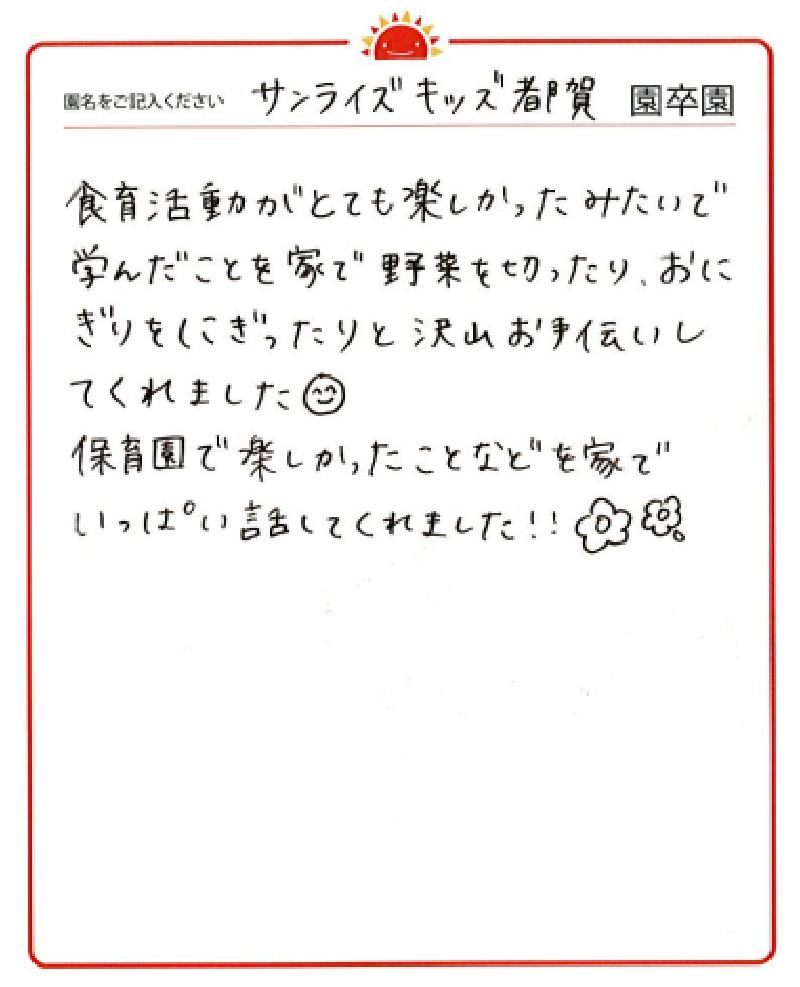 園名をご記入ください サンライズキッズ都賀 園卒園
食育活動がとても楽しかったみたいで
学んだことを家で野菜を切ったり、おに
ぎりをにぎったりと沢山お手伝いし
てくれました
保育園で楽しかったことなどを家で
いっぱい話してくれました!!